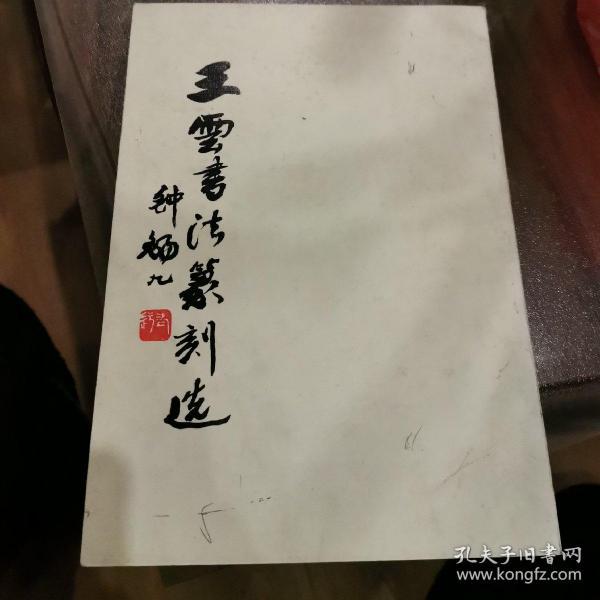 王雲书法篆刻选
钟锡九
孔夫子旧书网
www.kongfz.com